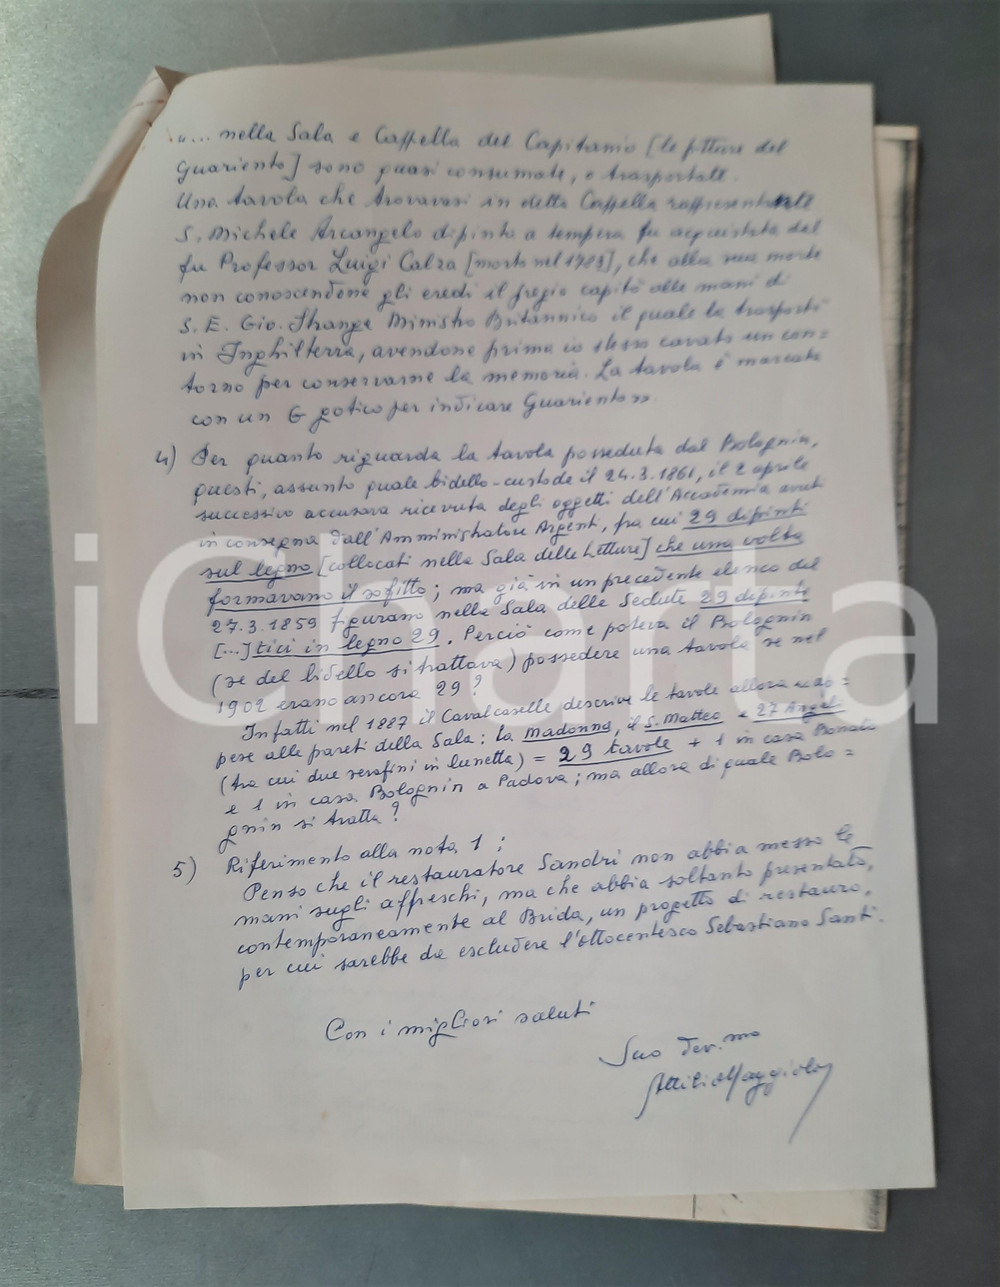 "... nella Sala e Cappella del Capitanio [le pitture del
Guariento] sono quasi consumate, e trasportate.
Una tavola che trovavasi in detta Cappella rappresentante
S. Michele Arcangelo dipinto a tempera fu acquistata dal
fu Professor Luigi Calza [morto nel 1783], che alla sua morte
non conoscendone gli eredi il fregio capitò alle mani di
S. E. Gio. Strange Ministro Britannico il quale la trasportò
in Inghilterra, avendone prima io stesso cavato un con=
torno per conservarne la memoria. La tavola è marcata
con un G gotico per indicare Guariento".
4) Per quanto riguarda la tavola posseduta dal Bolognin,
questi, assunto quale bidello-custode il 24.3.1861, il 2 aprile
successivo accusava ricevuta degli oggetti dell'Accademia avuti
in consegna dall'Amministratore Argenti, fra cui 29 dipinti
sul legno [collocati nella Sala delle Letture] che una volta
formavano il sofitto; ma già in un precedente elenco del
27.3.1859 figurano nella Sala delle Sedute 29 dipinti
[...]tici in legno 29. Perciò come poteva il Bolognin
(se del bidello si trattava) possedere una tavola se nel
1902 erano ancora 29?
Infatti nel 1887 il Cavalcaselle descrive le tavole allora ap=
pese alle pareti della Sala: la Madonna, il S. Matteo e 27 Angeli
(tra cui due serafini in lunetta) = 29 tavole + 1 in casa Bonato
e 1 in casa Bolognin a Padova; ma allora di quale Bolo=
gnin si tratta?
5) Riferimento alla nota 1;
Penso che il restauratore Sandri non abbia messo le
mani sugli affreschi, ma che abbia soltanto presentato,
contemporaneamente al Brida, un progetto di restauro,
per cui sarebbe da escludere l'ottocentesco Sebastiano Santi.
Con i migliori saluti
Suo dev.mo
Attilio Maggiolo
iCharta